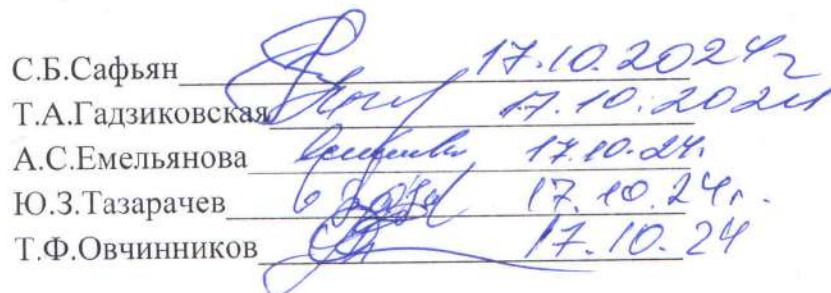 С.Б.Сафьян 17.10.2024г
Т.А.Гадзиковская 17.10.2024
А.С.Емельянова 17.10.24г.
Ю.З.Тазарачев 17.10.24г.
Т.Ф.Овчинников 17.10.24